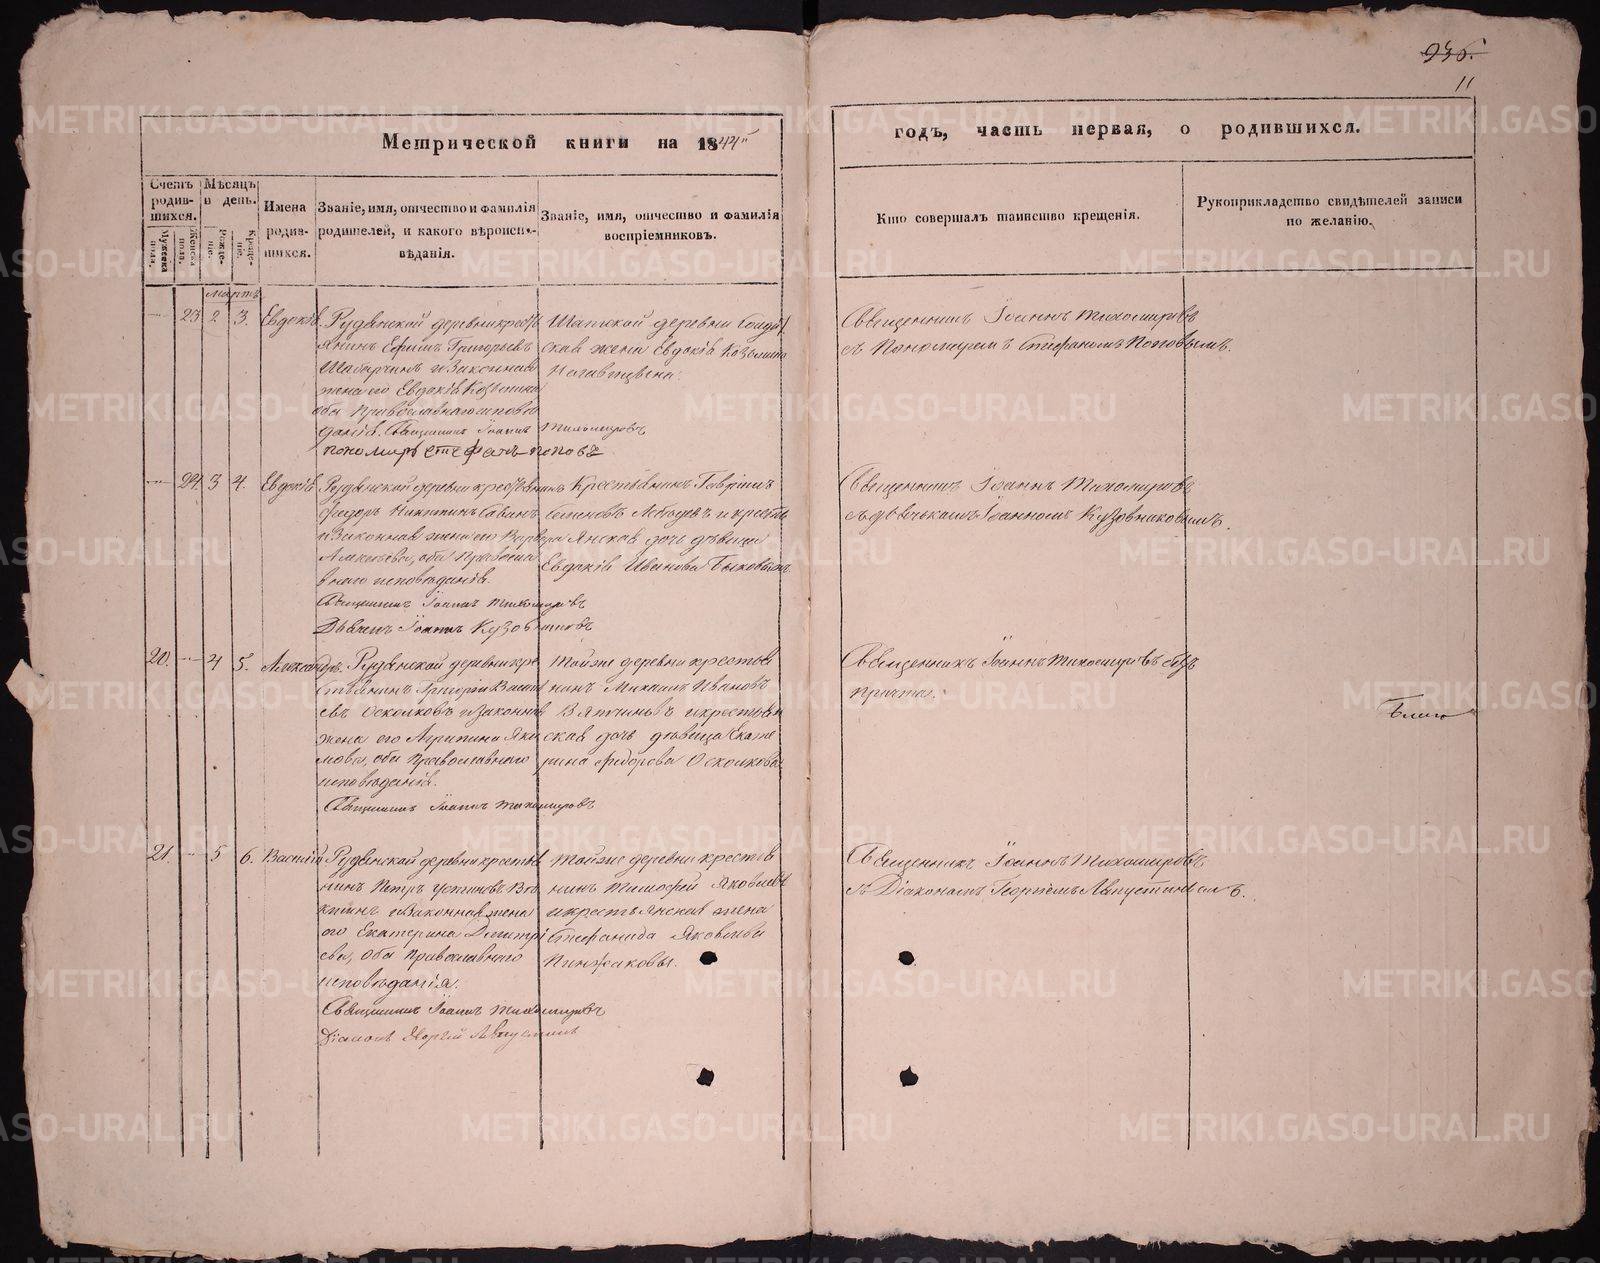 936.
11
Метрической книги на 1844й
годъ, часть первая, о родившихся.
Счетъ родив-шихся.
Мужеска пола.
Женска пола.
Мѣсяцъ и день.
Рожде-ніе.
Креще-ніе.
Имена родив-шихся.
Званіе, имя, отчество и фамилія
родителей, и какого вѣроиспо-
вѣданія.
Званіе, имя, отчество и фамилія
воспріемниковъ.
Кто совершалъ таинство крещенія.
Рукоприкладство свидѣтелей записи
по желанію.
Мартъ
23 2 3. Евдокія
Рудянской деревни крестъ
янинъ Ефимъ Григорьевъ
и законная
жена его Евдокія Козьмина
оба Православнаго испове
данія. Священникъ Іоаннъ Тихомировъ
пономарь Стефанъ Поповъ
деревни Солдат
ская жена Евдокія Козьмина
Священникъ Іоаннъ Тихомировъ
съ Пономаремъ Стефаномъ Поповымъ.
24 3 4. Евдокія
Рудянской деревни крестьянинъ
Федоръ Никитинъ Савинъ
и законная жена его Варвара
Алексѣева, оба Правосла
внаго исповѣданія.
Священникъ Іоаннъ Тихомировъ
Дьячекъ Іоаннъ Кузовниковъ
Крестьянинъ Гавріилъ
Семеновъ Лебедевъ и кресть
янская дочь дѣвица
Евдокія Иванова Быковыхъ.
Священникъ Іоаннъ Тихомировъ
съ дьячькомъ Іоанномъ Кузовниковымъ.
20. 4 5. Александръ.
Рудянской деревни кре
стьянинъ Григорій Василь
евъ Осколковъ и законная
жена его Агрипина Яки
мова, оба Православнаго
исповѣданія.
Священникъ Іоаннъ Тихомировъ
Тойже деревни крестья
нинъ Михаилъ Ивановъ
Вяткиныхъ и крестьян
ская дочь дѣвица Екате
рина Федорова Осколкова.
Священникъ Іоаннъ Тихомировъ безъ
причта.
21. 5 6. Василій
Рудянской деревни крестья
нинъ Петръ Устиновъ Вя
ткинъ и законная жена
его Екатерина Дмитрі
ева, оба Православнаго
исповѣданія.
Священникъ Іоаннъ Тихомировъ
Діаконъ Георгій Августинъ
Тойже деревни крестья
нинъ Тимофей Яковлевъ
и крестьянская жена
Стефанида Яковлева
Пинжаковы.
Священникъ Іоаннъ Тихомировъ
съ Діакономъ Георгіемъ Августиновымъ.
METRIKI.GASO-URAL.RU